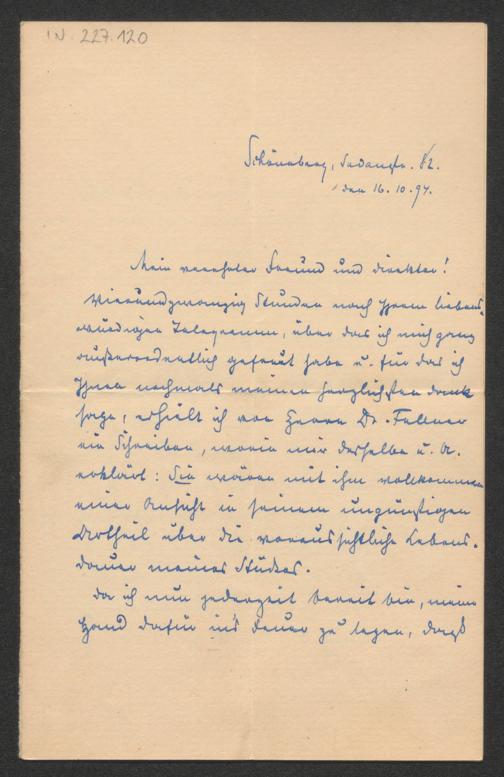 IN. 227.120
Schöneberg, Sedanstr. 82.
den 16.10.94.
Mein verehrter Freund und Direktor!
Vierundzwanzig Stunden nach Ihrem liebens-
würdigen Telegramm, über das ich mich ganz
außerordentlich gefreut habe u. für das ich
Ihnen nochmals meinen herzlichsten Dank
sage, erhielt ich von Herrn Dr. Fellner
ein Schreiben, worin mir derselbe u. A.
erklärt: Sie wären mit ihm vollkommen
einer Ansicht in seinem ungünstigen
Urtheil über die voraussichtliche Lebens-
dauer meines Stückes.
Da ich nun jederzeit bereit bin, meine
Hand dafür in's Feuer zu legen, daß